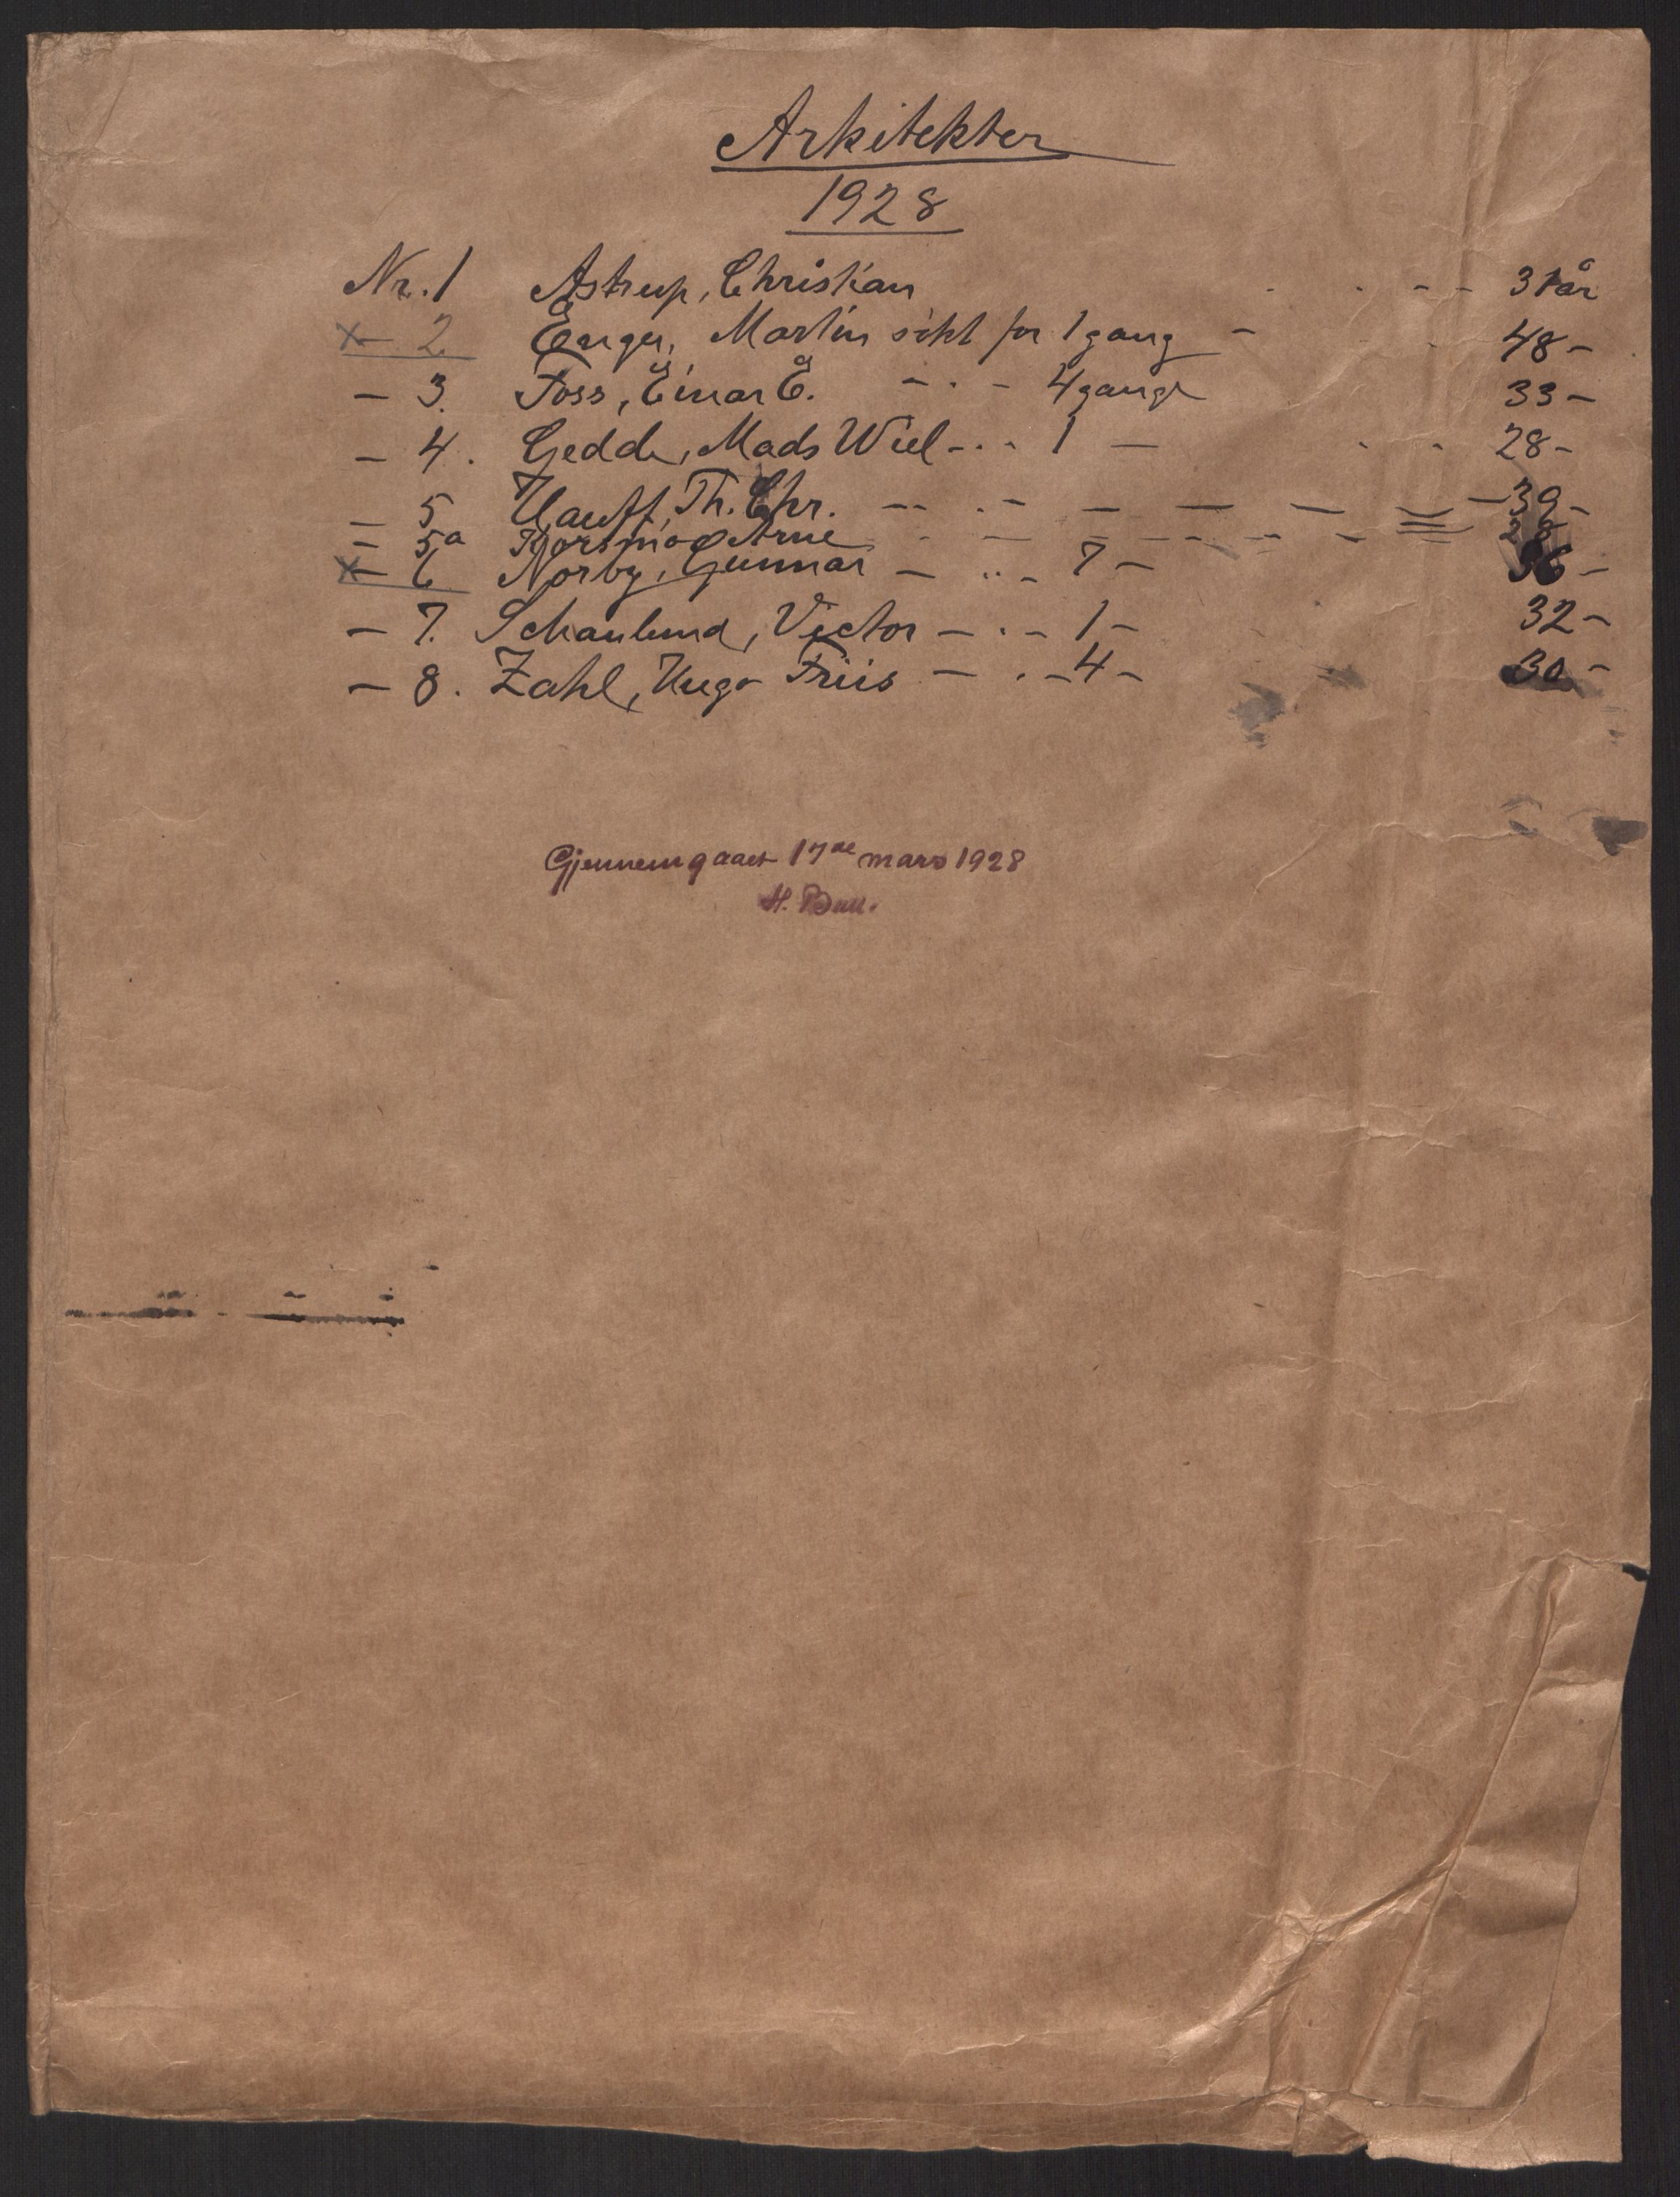 Arkitekter
1928
Nr. 1 Astrup, Christian - - - 31 år
x - 2. Enger, Martin søkt for 1 gang - 48 -
- 3. Foss, Einar E. - . - 4 gange 33 -
- 4. Gedde, Mads Wiel - . . 1 - 28 -
- 5 Hauff, Th. Chr. - - . - - - - - - 39 -
- 5a Korsmo Arne - - - - - - - 28
x - 6 Norby, Gunnar - .. - 7 - 36 -
- 7. Schaulund, Victor - . - 1 - 32 -
- 8. Zahl, Hugo Friis - . - 4 - 30 -
Gjennemgaaet 17de mars 1928
H. Bull.